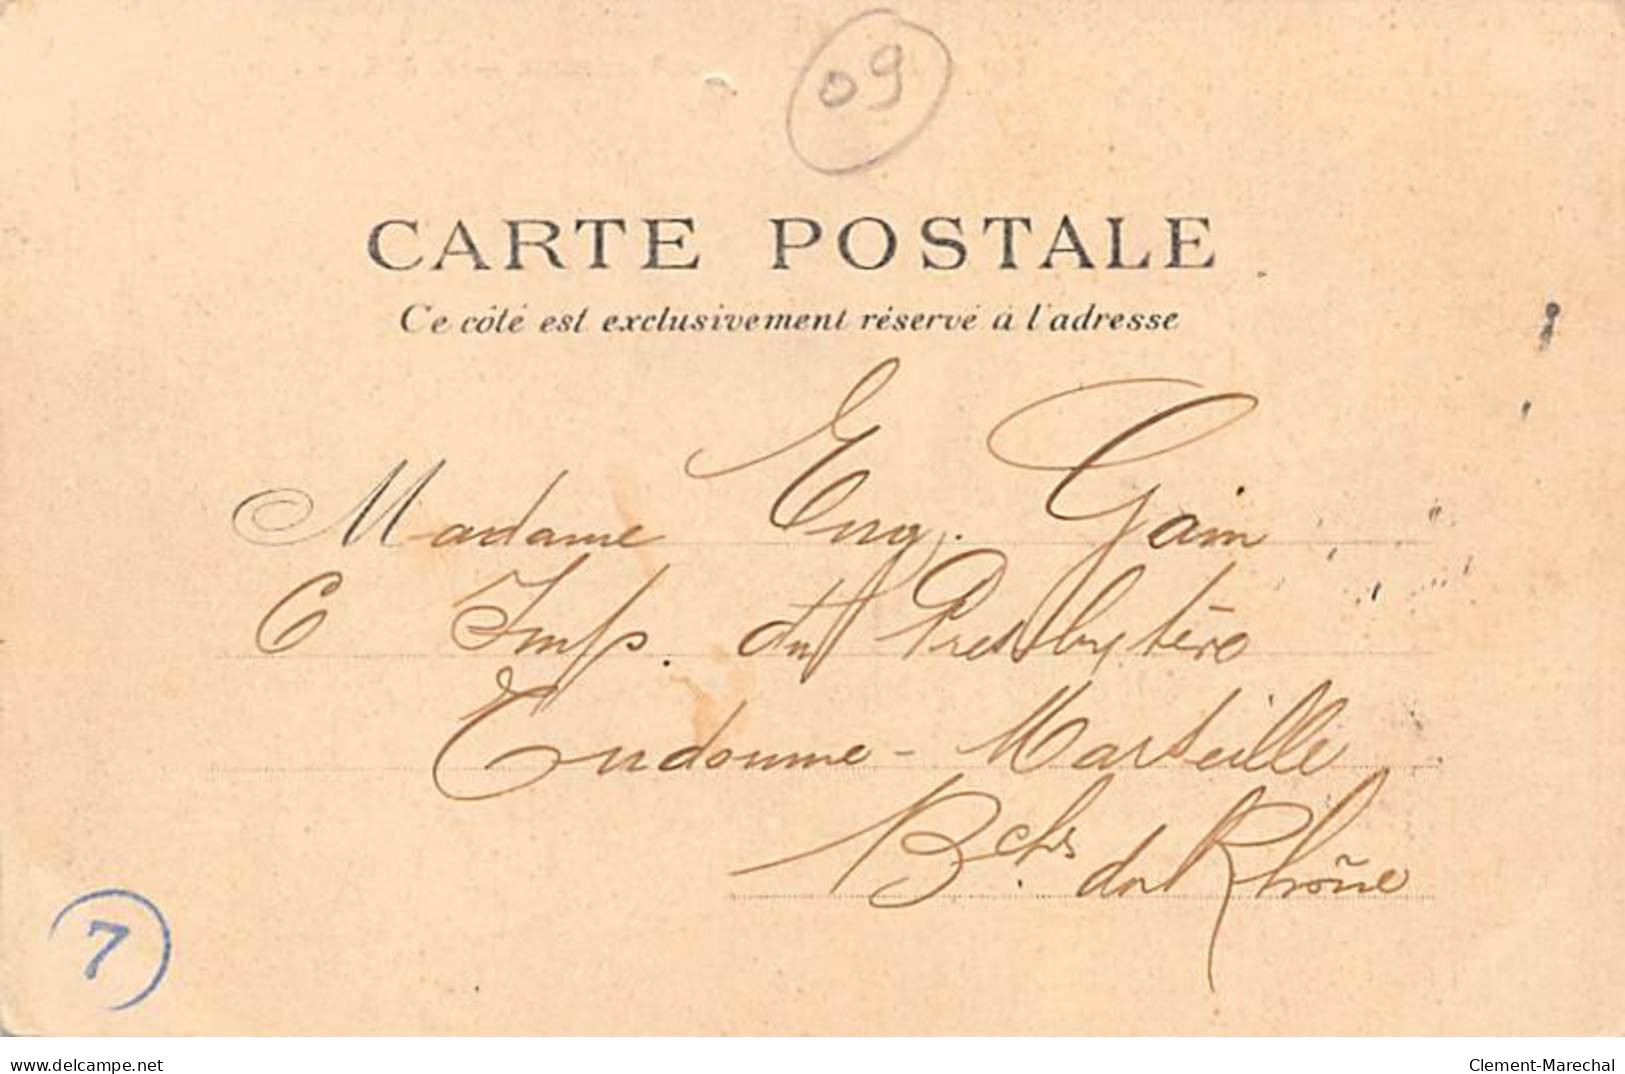 09
CARTE POSTALE
Ce côté est exclusivement réservé à l'adresse
Madame Eug. Gain
6 Imp. du Presbytère
Endoume - Marseille
Bches. du Rhône
7
delcampe.net
Clement-Marechal